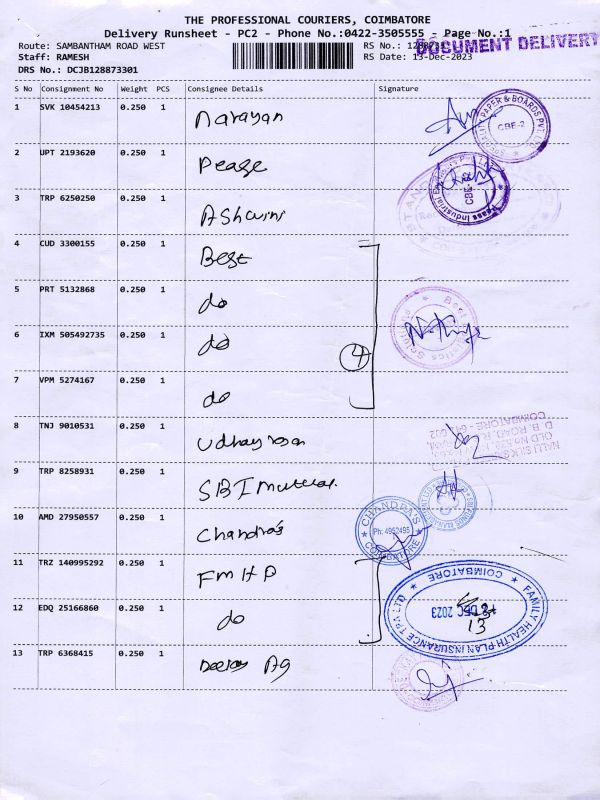 THE PROFESSIONAL COURIERS, COIMBATORE
Delivery Runsheet - PC2 - Phone No.:0422-3505555 - Page No.:1
Route: SAMBANTHAM ROAD WEST
RS No.:
DOCUMENT DELIVERY
Staff: RAMESH
RS Date: 13-Dec-2023
DRS No.: DCJB128873301
S No Consignment No Weight PCS Consignee Details Signature
1 SVK 10454213 0.250 1 Narayan
PAPER & BOARDS PVT. LTD. CBE-2
2 UPT 2193620 0.250 1
3 TRP 6250250 0.250 1 Ashwini
4 CUD 3300155 0.250 1 Best
5 PRT 5132868 0.250 1 do
6 IXM 505492735 0.250 1 do
4
7 VPM 5274167 0.250 1 do
8 TNJ 9010531 0.250 1
NALLI SILKS
OLD No.
D.B. ROAD
COIMBATORE - 641 002
9 TRP 8258931 0.250 1 SBI Mutual.
10 AMD 27950557 0.250 1 Chandra's
CHANDRA'S Ph: 4952495 COIMBATORE
11 TRZ 140995292 0.250 1 FMHP
FAMILY HEALTH PLAN INSURANCE TPA LTD
COIMBATORE
12 EDQ 25166860 0.250 1 do
DEC 2023
13
13 TRP 6368415 0.250 1